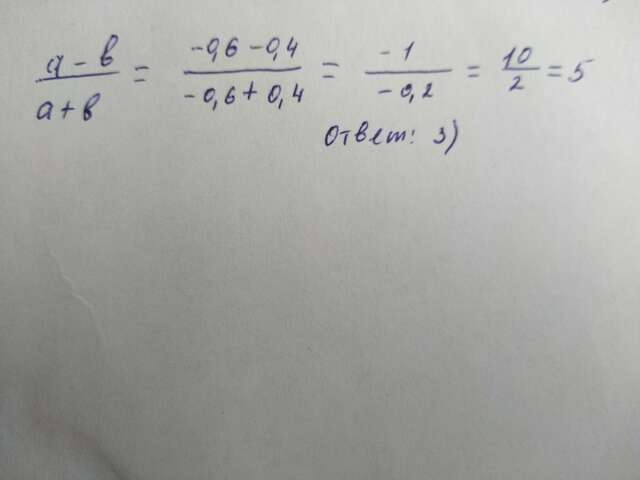 a - b / a + b = -0,6 - 0,4 / -0,6 + 0,4 = -1 / -0,2 = 10 / 2 = 5
Ответ: 3)